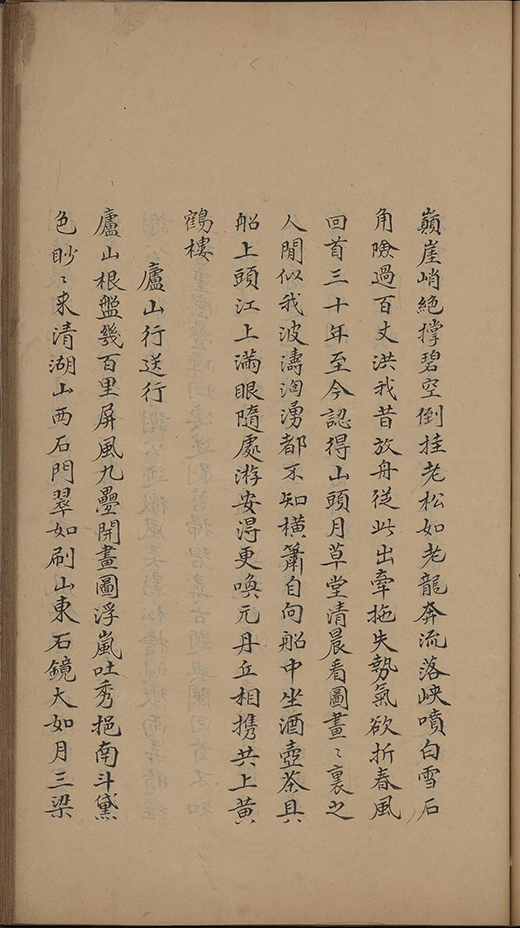 巔崖峭絕撑碧空倒挂老松如老龍奔流落峽噴白雪石
角險過百丈洪我昔放舟從此出牽拖失勢氣欲折春風
回首三十年至今認得山頭月草堂清晨看圖畫〻裏之
人閒似我波濤洶湧都不知橫簫自向船中坐酒壺茶具
船上頭江上滿眼隨處游安得更喚元丹丘相携共上黃
鶴樓
廬山行送行
廬山根盤幾百里屏風九疊開畫圖浮嵐吐秀挹南斗黛
色眇〻来清湖山西石門翠如刷山東石鏡大如月三梁